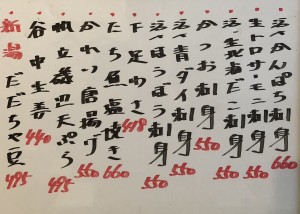 活〆かんぱち刺身 660
生トロサーモン刺身 550
活〆北海だこ刺身 550
かつお刺身 550
活〆青ダイ刺身 550
活〆ほうぼう刺身 550
下足わさ 418
たち魚塩焼き 660
かれい唐揚げ 550
帆立磯辺天ぷら 495
谷中生姜 440
新潟 だだちゃ豆 495